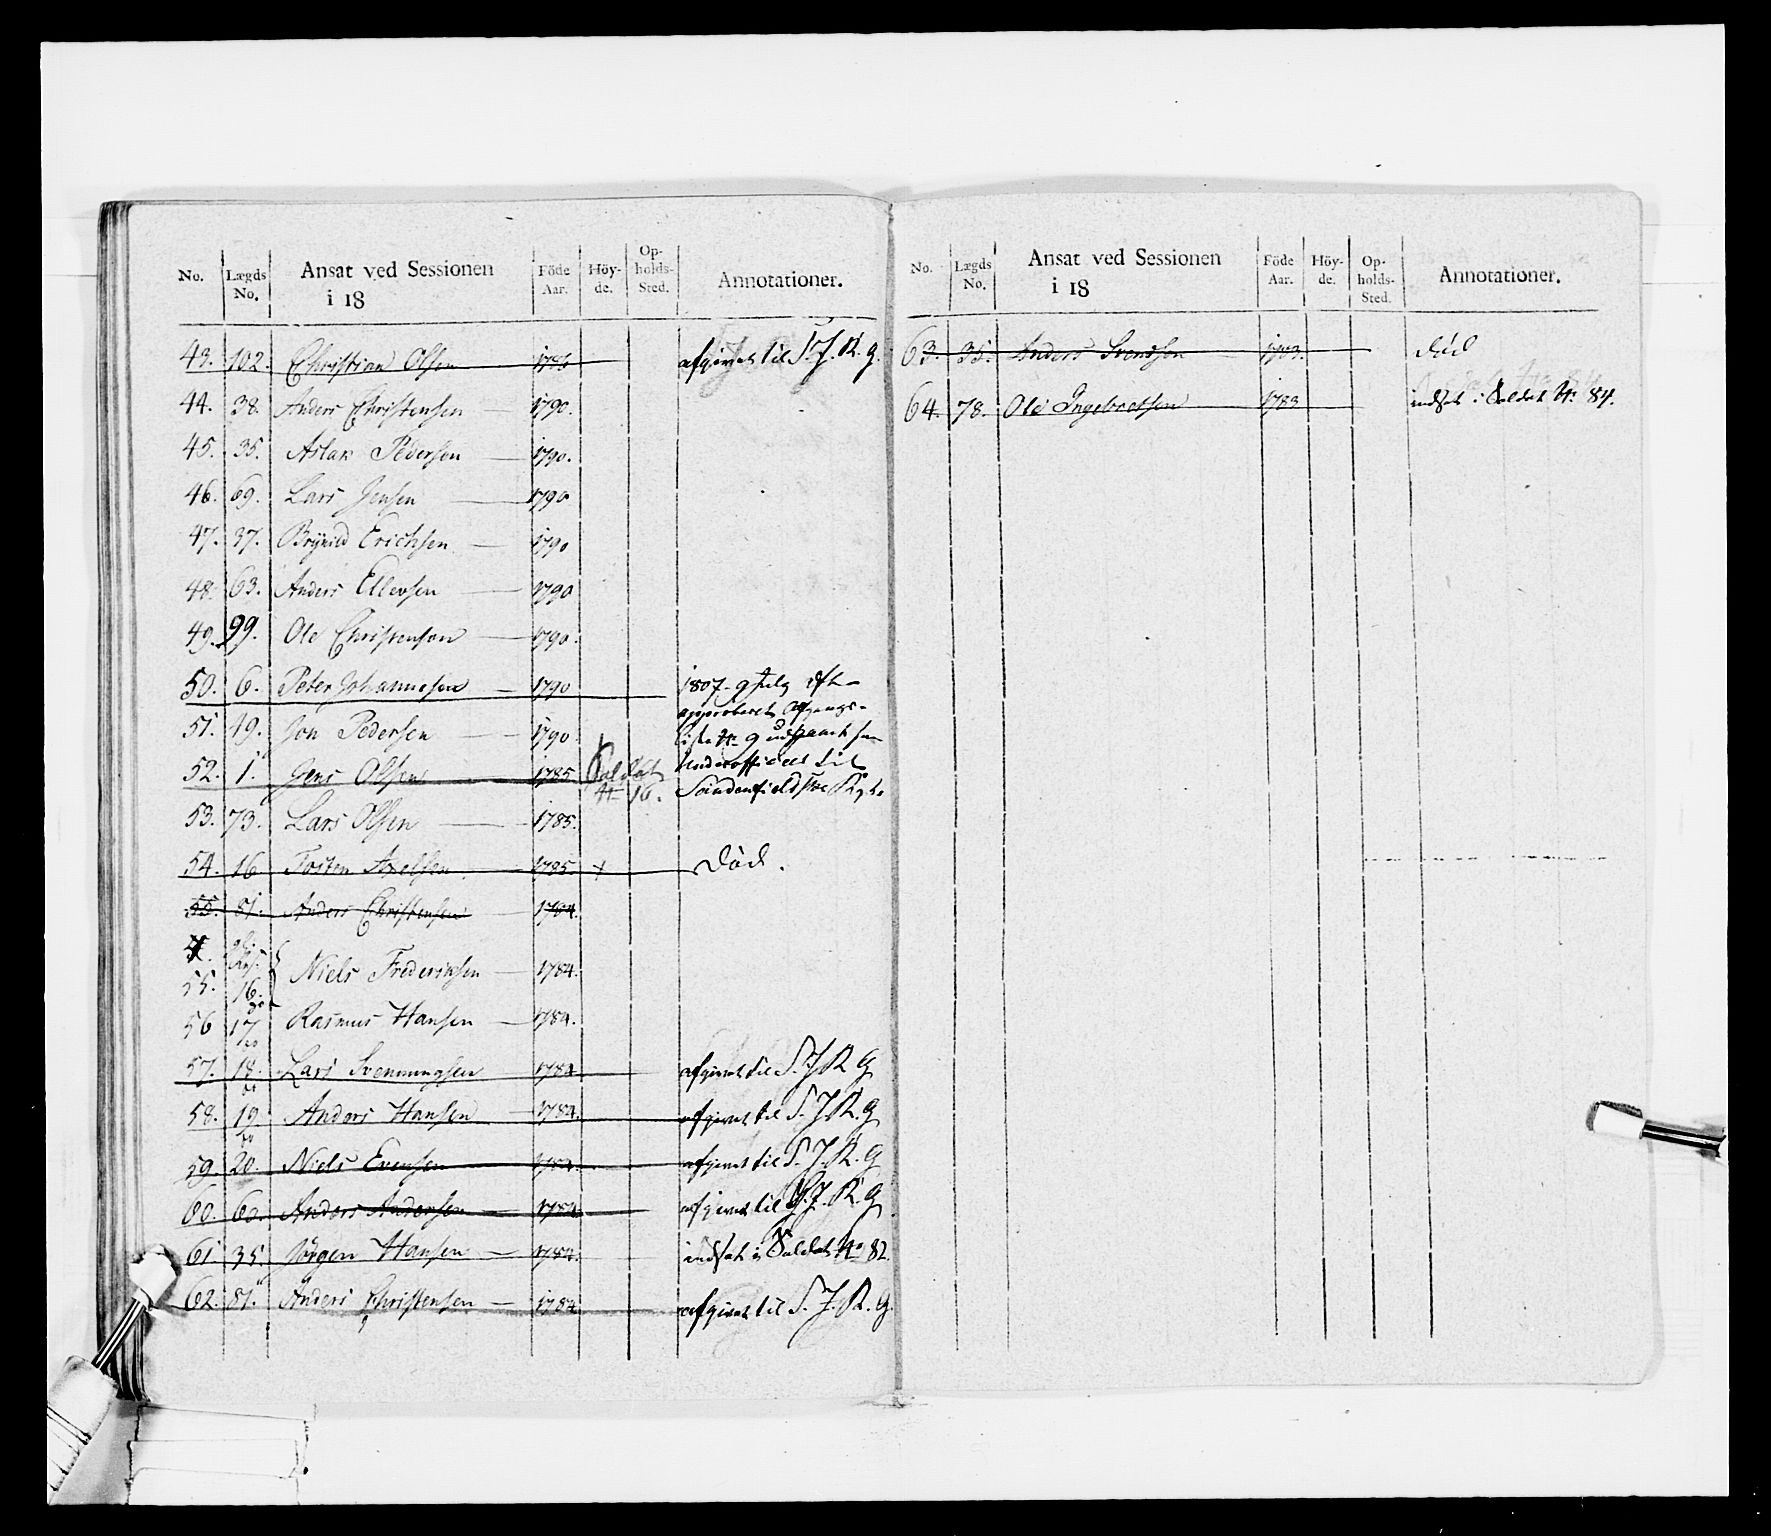 No. Lægds No. Ansat ved Sessionen i 18 Föde Aar. Höy-de. Op-holds-Sted. Annotationer.
43. 102. Christian Olsen 1786 afgivet til S. J. R. G.
44. 38. Anders Christensen — 1790.
45. 35. Aslak Pedersen — 1790.
46. 69. Lars Jensen — 1790
47. 37. Brynild Erichsen — 1790
48. 63. Anders Ellevsen — 1790
49. 99. Ole Christensen — 1790.
50. 6. Peter Johannesen — 1790 1807 - 9 July
51. 49. Jon Pedersen — 1790 approberet Afgangs-
liste No 9 udgaaet som
52. 1. Jens Olsen 1785 Soldat No 16. Underofficeer til
Søndenfieldske
53. 73. Lars Olsen — 1785.
54. 16 Tosten Axelsen — 1785. + Død.
55. 81. Anders Christensen — 1784.
55. 16. Niels Frederiksen — 1784.
56 17 Rasmus Hansen — 1784.
57. 18. Lars Svenningsen 1784 afgivet til S. J. R. G
58. 19. Anders Hansen — 1784. afgivet til S. J. R. G
59. 20. Niels Evensen — 1784. afgivet til S. J. R. G
60. 60. Anders Andersen — 1784. afgivet til S. J. R. G
61. 35. Jörgen Hansen — 1784. indsat i Soldat No 82.
62. 81. Anders Christensen — 1784 afgivet til S. J. R. G.
No. Lægds No. Ansat ved Sessionen i 18 Föde Aar. Höy-de. Op-holds-Sted. Annotationer.
63. 35. Anders Svendsen 1783. død
64. 78. Ole Ingebretsen 1783 indsat i Soldat No 84.